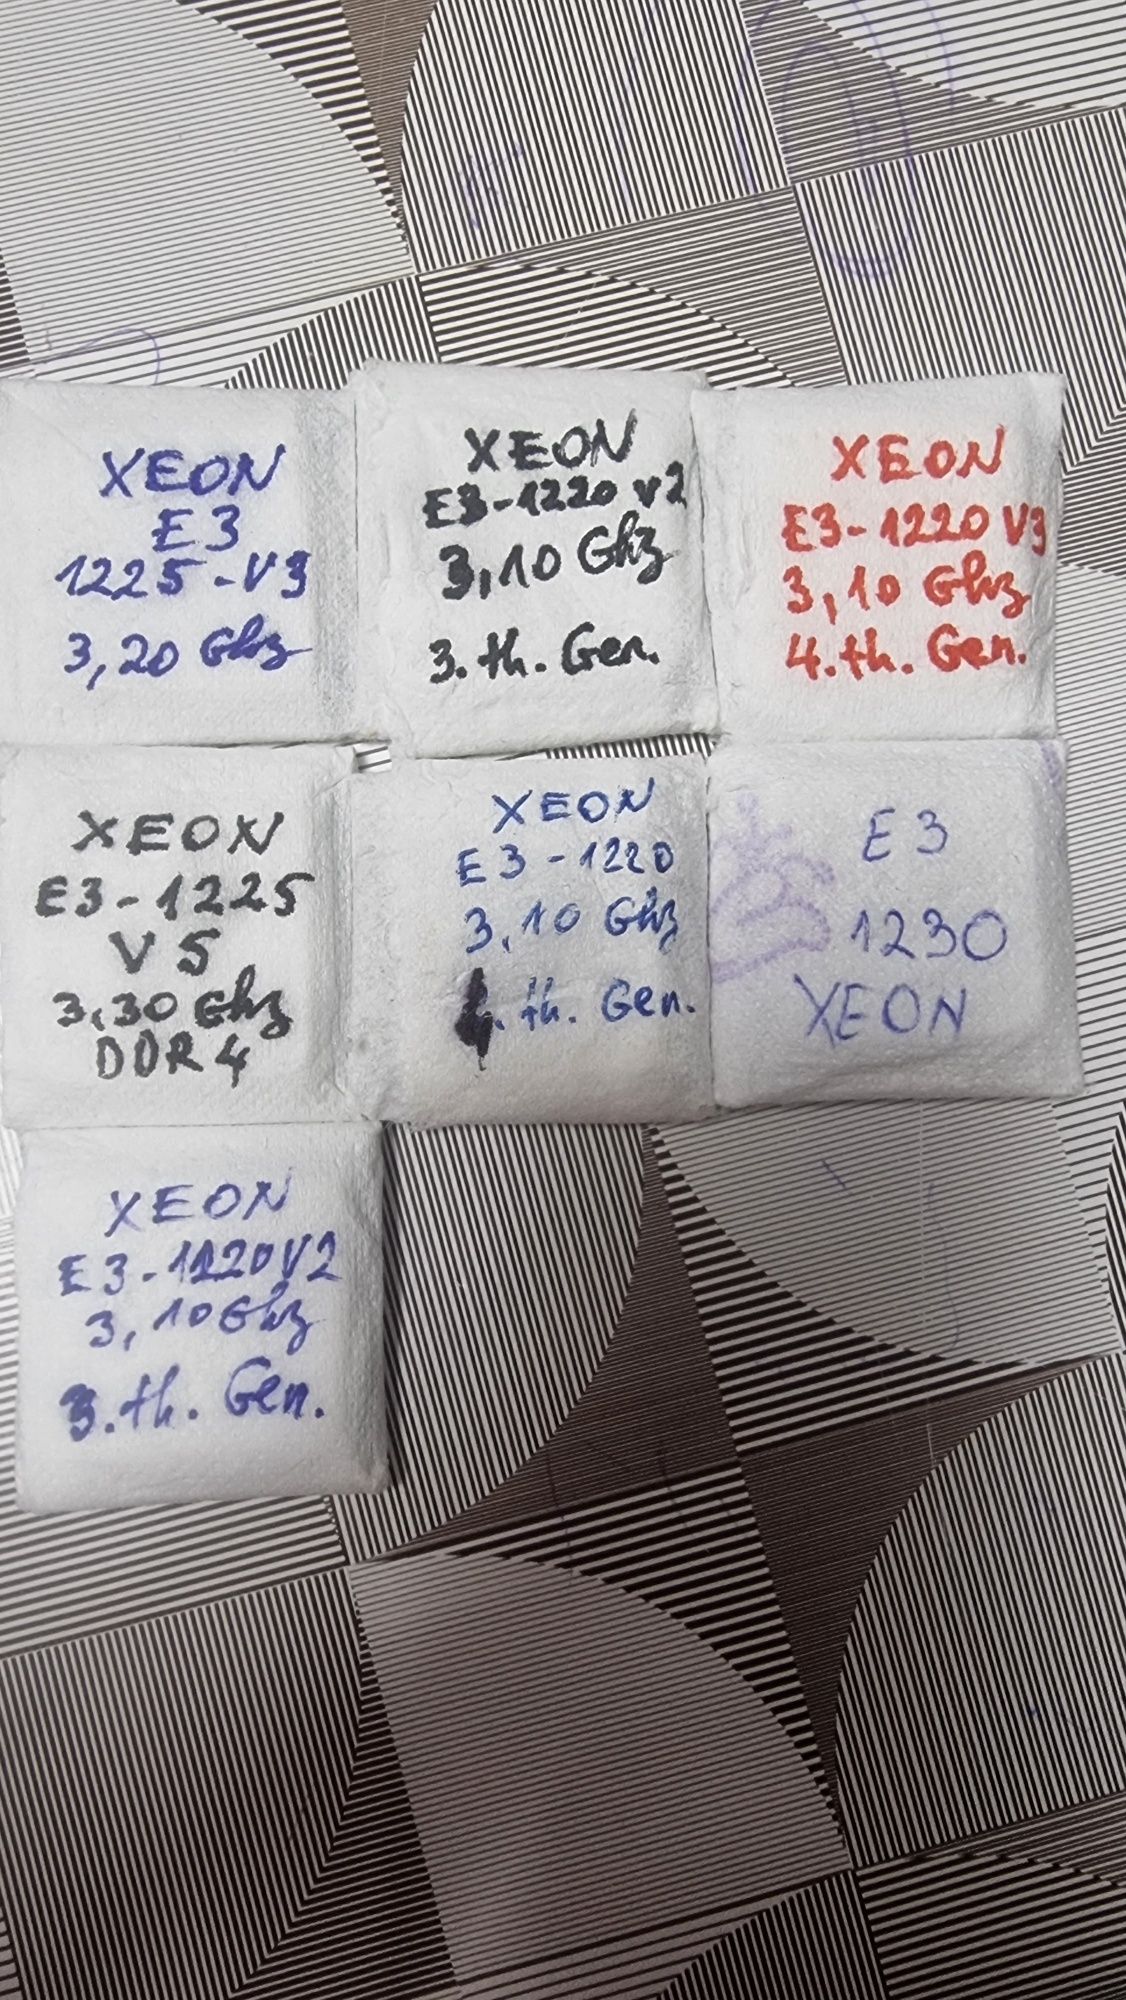 XEON
E3
1225-V3
3,20 Ghz
XEON
E3-1220 V2
3,10 Ghz
3.th. Gen.
XEON
E3-1220 V3
3,10 Ghz
4.th. Gen.
XEON
E3-1225
V5
3,30 Ghz
DDR4
XEON
E3-1220
3,10 Ghz
th. Gen.
E3
1230
XEON
XEON
E3-1220V2
3,10Ghz
3.th. Gen.